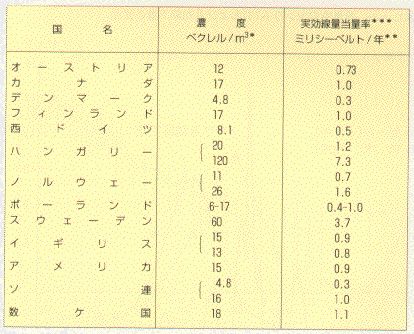 国 名 濃 度 ベクレル/m³* 実効線量当量率*** ミリシーベルト/年**
オーストリア 12 0.73
カナダ 17 1.0
デンマーク 4.8 0.3
フィンランド 17 1.0
西ドイツ 8.1 0.5
ハンガリー 20 1.2
120 7.3
ノルウェー 11 0.7
26 1.6
ポーランド 6-17 0.4-1.0
スウェーデン 60 3.7
イギリス 15 0.9
13 0.8
アメリカ 15 0.9
ソ連 4.8 0.3
16 1.0
数ケ国 18 1.1